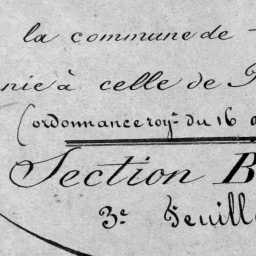 la commune de
nie à celle de
(ordonnance roy.^le du 16
Section B
3.^e Feuill